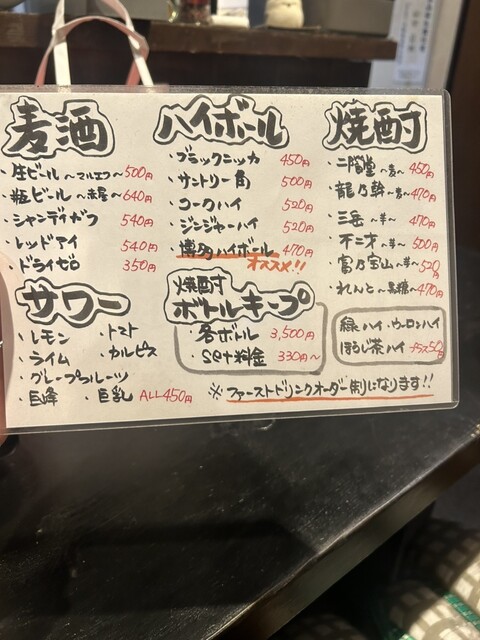 麦酒
・生ビール 〜マルエフ〜 500円
・瓶ビール 〜赤星〜 640円
・シャンディガフ 540円
・レッドアイ 540円
・ドライゼロ 350円
サワー
・レモン ・トマト
・ライム ・カルピス
・グレープフルーツ
・巨峰 ・巨乳 ALL450円
ハイボール
・ブラックニッカ 450円
・サントリー角 500円
・コークハイ 520円
・ジンジャーハイ 520円
・博多ハイボール 470円
オススメ!!
焼酎
ボトルキープ
各ボトル 3,500円
・set料金 330円〜
焼酎
・二階堂 〜麦〜 450円
・龍乃幹 〜麦〜 470円
・三岳 〜芋〜 470円
・不二才 〜芋〜 500円
・富乃宝山 〜芋〜 520円
・れんと 〜黒糖〜 470円
緑ハイ・ウーロンハイ
ほうじ茶ハイ プラス50円
※ファーストドリンクオーダー制になります!!